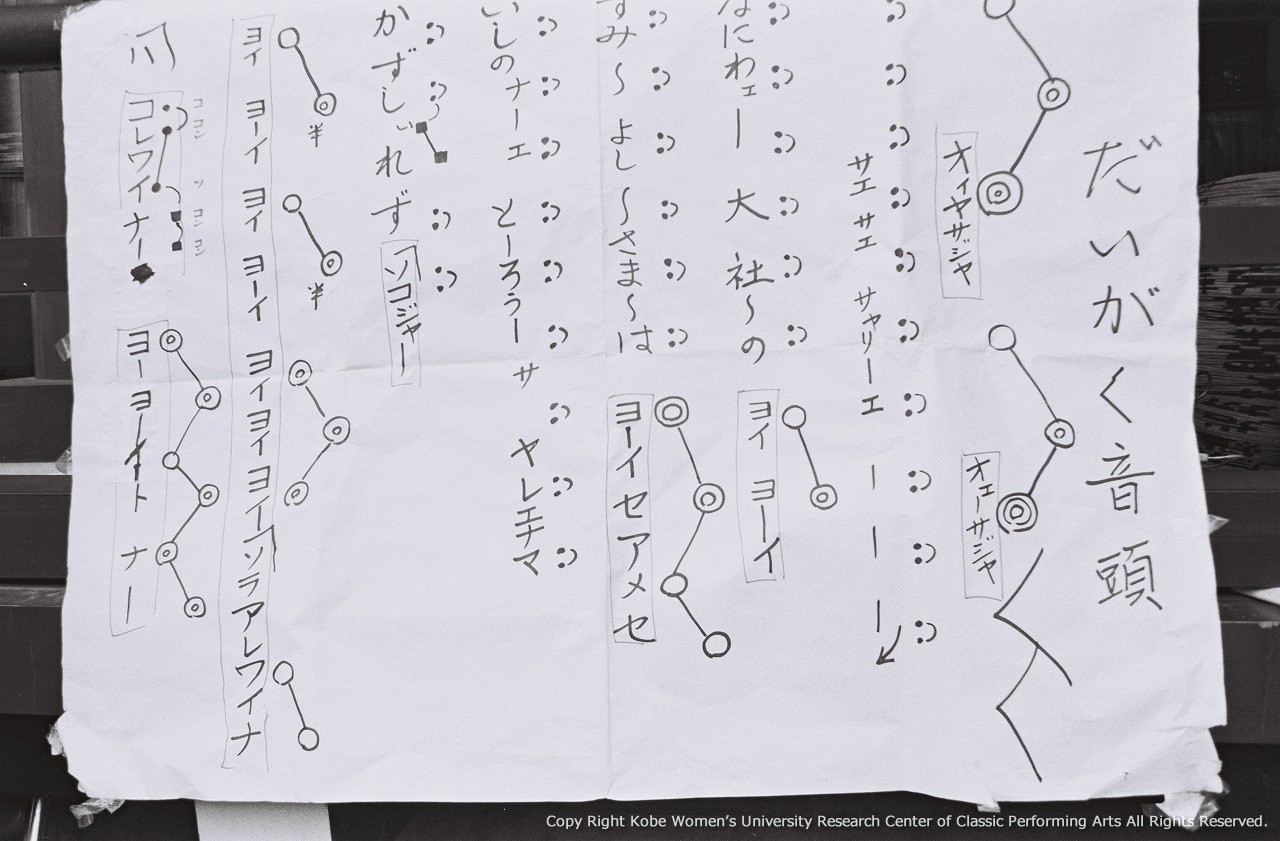 だいがく音頭
オイヤサジャ
オエーサジャ
サエ サエ サャリーエ ー ー ー
なにわエー 大社〜の
ヨイ ヨーイ
すみ〜 よし〜さま〜は
ヨーイセアメセ
いしのナーエ とーろうーサ ヤレエナマ
かずしれず
ソコジャー
ヨイ ヨーイ ヨイ ヨーイ ヨイヨイヨイーソラアレワイナ
コレワイナー
ココン ツ コンコン
ヨーヨーイト ナー
Copy Right Kobe Women's University Research Center of Classic Performing Arts All Rights Reserved.